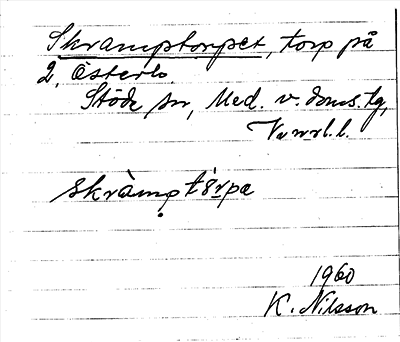 Skramptorpet, torp på
2, Österlo.
Stöde sn, Med. v. doms. tg,
Vnrrl. l.
skràmptórpa
1960
K. Nilsson